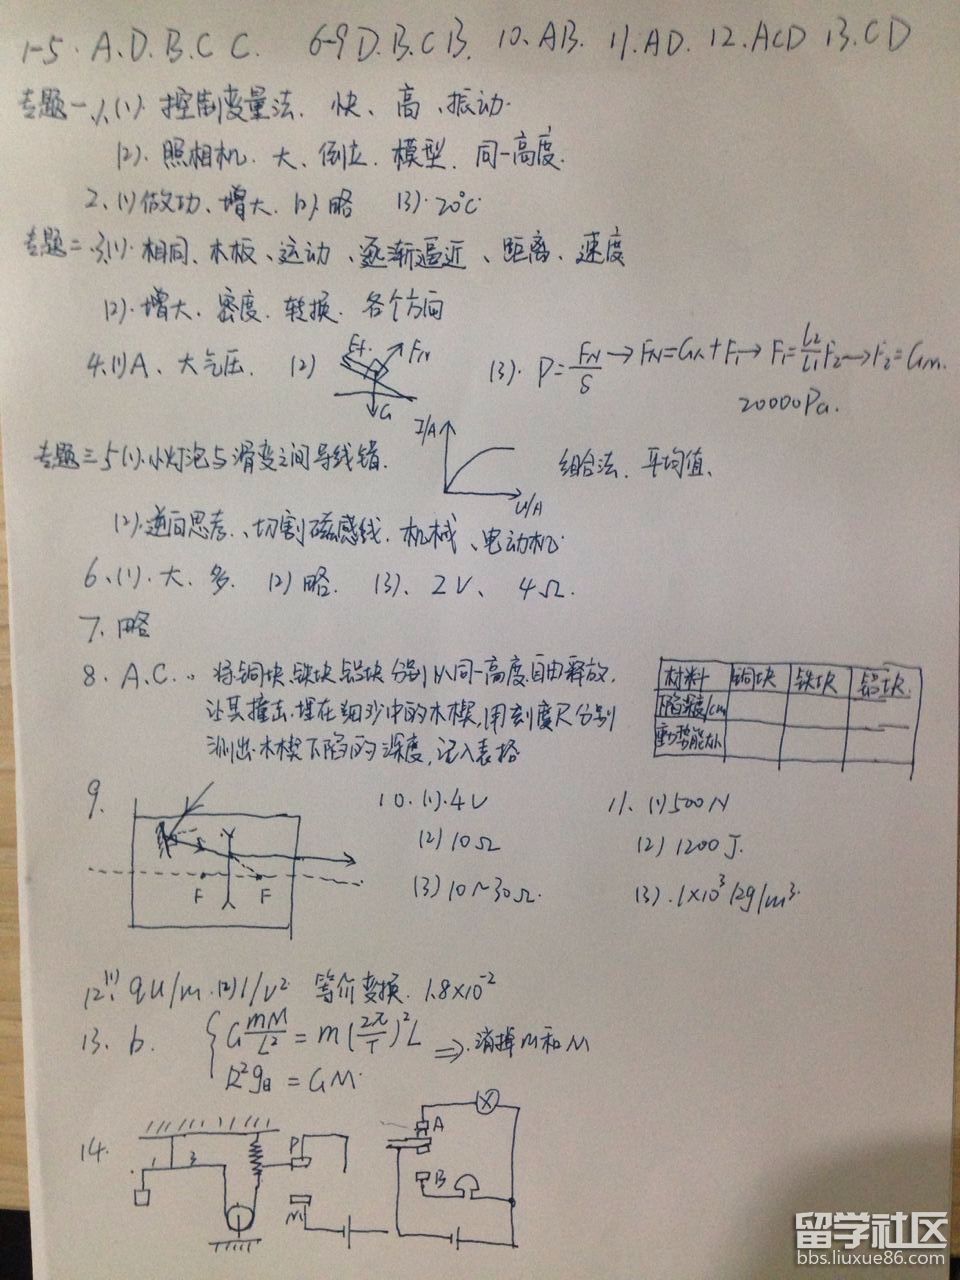 1-5. A.D.B.C C. 6-9 D.B.C B. 10. AB. 11. AD. 12. ACD 13. CD
专题一、1、(1). 控制变量法. 快、高、振动.
(2). 照相机. 大、倒立. 模型. 同一高度.
2、(1) 做功、增大. (2) 略 (3). 20℃
专题二、3、(1). 相同、木板、运动、逐渐逼近、距离、速度
(2). 增大. 密度. 转换. 各个方向
4. (1) A、大气压. (2) FN G (3). P=FN/S → FN=G人+F1 → F1=L2/L1 F2 → F2=GM.
20000Pa.
专题三 5 (1). 小灯泡与滑变之间导线错. I/A U/A 组合法、平均值、
(2). 逆向思考、切割磁感线. 机械、电动机.
6、(1). 大. 多. (2) 略. (3)、2V、4Ω.
7. 略
8. A.C.. 将铜块、铁块、铝块分别从同一高度自由释放,
让其撞击埋在细沙中的木楔,用刻度尺分别
测出木楔下陷的深度,记入表格
材料 铜块 铁块 铝块
下陷深度/cm
9.
F F
10. (1). 4V
(2) 10Ω
(3) 10~30Ω.
11. (1) 500N
(2) 1200J.
(3). 1×10³kg/m³
12、(1) qU/m. (2) 1/v² 等价变换. 1.8×10⁻²
13. b. { G mM/L² = m(2π/T)²L ⇒ 消掉m和M
R²g日 = GM.
14. P M A B
留学社区
bbs.liuxue86.com